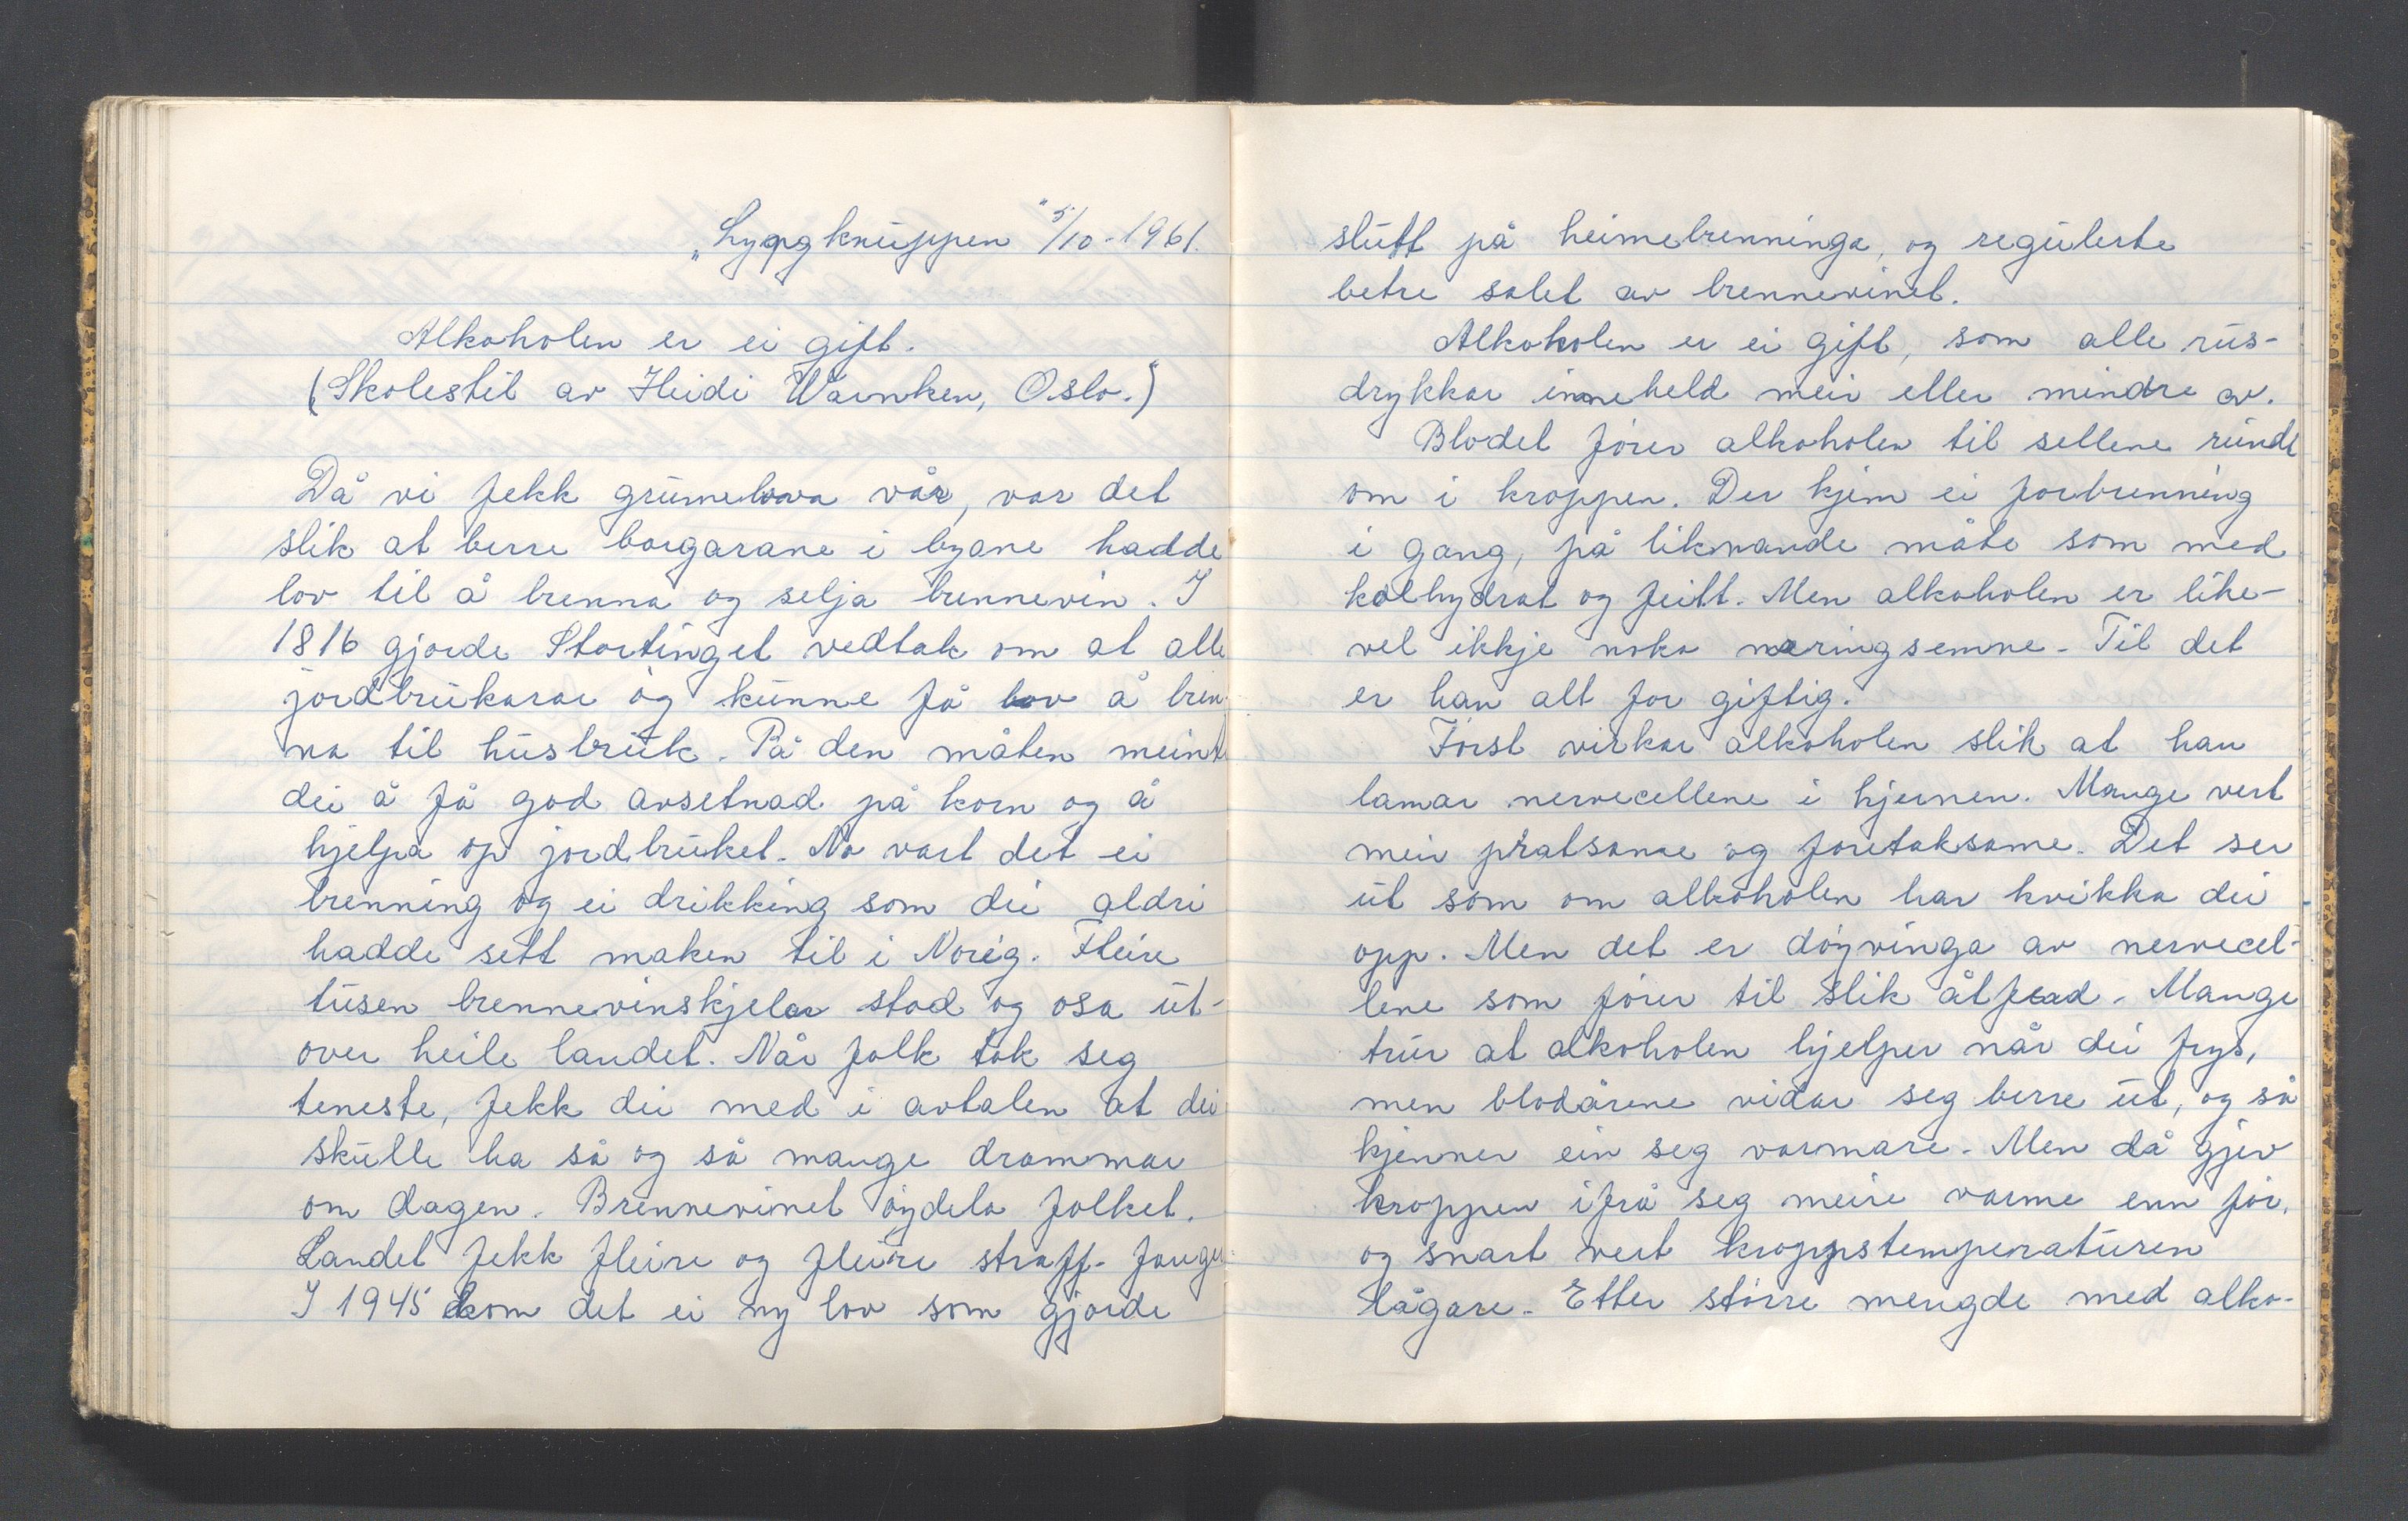 „Lyggknuppen" 5/10-1961.
Alkoholen er ei gift.
(Skolestil av Heidi Warnken, Oslo.)
Då vi fekk grunnelova vår, var det
slik at berre borgarane i byane hadde
lov til å brenna og selja brennevin. I
1816 gjorde Stortinget vedtak om at alle
jordbrukarar òg kunne få lov å bren-
na til husbruk. På den måten meinte
dei å få god avsetnad på korn og å
hjelpa op jordbruket. No vart det ei
brenning og ei drikking som dei aldri
hadde sett maken til i Norig. Fleire
tusen brennevinskjelar stod og osa ut-
over heile landet. Når folk tok seg
teneste, fekk dei med i avtalen at dei
skulle ha så og så mange drammar
om dagen. Brennevinet øydela folket.
Landet fekk fleire og fleire straff-fanger.
I 1945 kom det ei ny lov som gjorde
slutt på heimebrenninga, og regulerte
betre salet av brennevinet.
Alkoholen er ei gift, som alle rus-
drykkar inneheld meir eller mindre av.
Blodet fører alkoholen til sellene rundt
om i kroppen. Der kjem ei forbrenning
i gang, på liknande måte som med
kolhydrat og feitt. Men alkoholen er like-
vel ikkje noko næringsemne. Til det
er han alt for giftig.
Først virkar alkoholen slik at han
lamar nervecellene i hjernen. Mange vert
meir pratsame og foretaksame. Det ser
ut som om alkoholen har kvikka dei
opp. Men det er døyvinga av nervecel-
lene som fører til slik åtferd. Mange
trur at alkoholen hjelper når dei frys,
men blodårene vidar seg berre ut, og så
kjenner ein seg varmare. Men då gjev
kroppen ifrå seg meire varme enn før,
og snart vert kroppstemperaturen
lågare. Etter større mengde med alko-